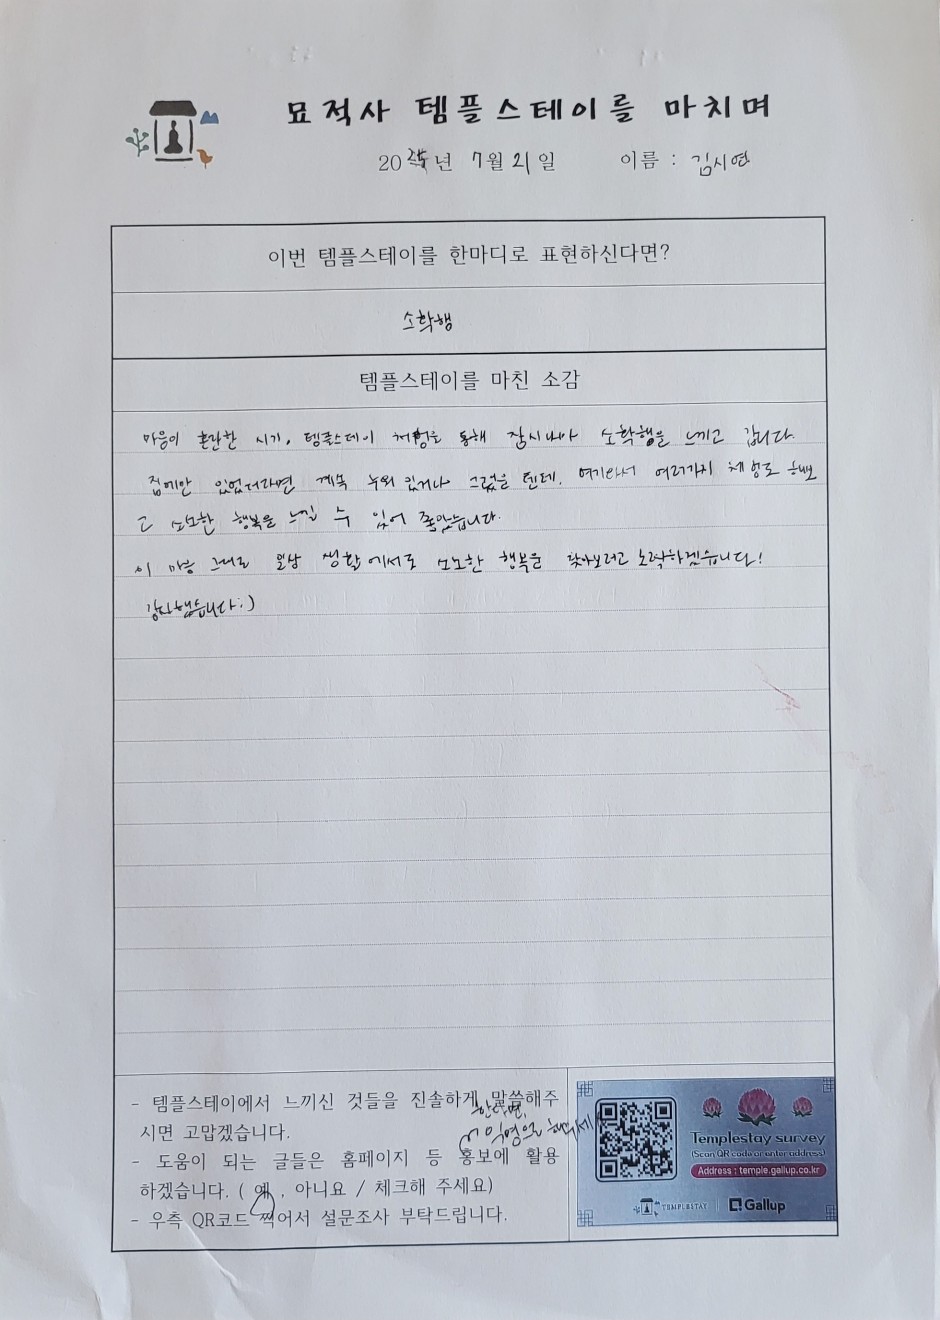 묘적사 템플스테이를 마치며
20 년 7월 21일 이름 : 김시연
이번 템플스테이를 한마디로 표현하신다면?
소확행
템플스테이를 마친 소감
마음이 혼란한 시기, 템플스테이 체험을 통해 잠시나마 소확행을 느끼고 갑니다.
집에만 있었더라면 계속 누워 있거나 그랬을 텐데, 여기와서 여러가지 체험도 해보
고 소소한 행복을 느낄 수 있어 좋았습니다.
이 마음 그대로 일상 생활에서도 소소한 행복을 찾아보려고 노력하겠습니다!
감사했습니다:)
- 템플스테이에서 느끼신 것들을 진솔하게 말씀해주
시면 고맙겠습니다.
한다면,
익명으로
- 도움이 되는 글들은 홈페이지 등 홍보에 활용
하겠습니다. ( 예 , 아니요 / 체크해 주세요)
- 우측 QR코드 찍어서 설문조사 부탁드립니다.
Templestay survey
(Scan QR code or enter address)
Address : temple.gallup.co.kr
TEMPLESTAY Gallup